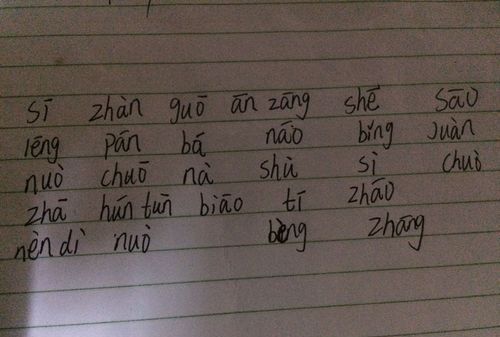 sī zhàn guō ān zāng shē sāo
léng pán bá náo bíng juàn
nuò chuō nà shù sì chuò
zhā hún tún biāo tī zhāo
nèn dì nuò bèng zhāng